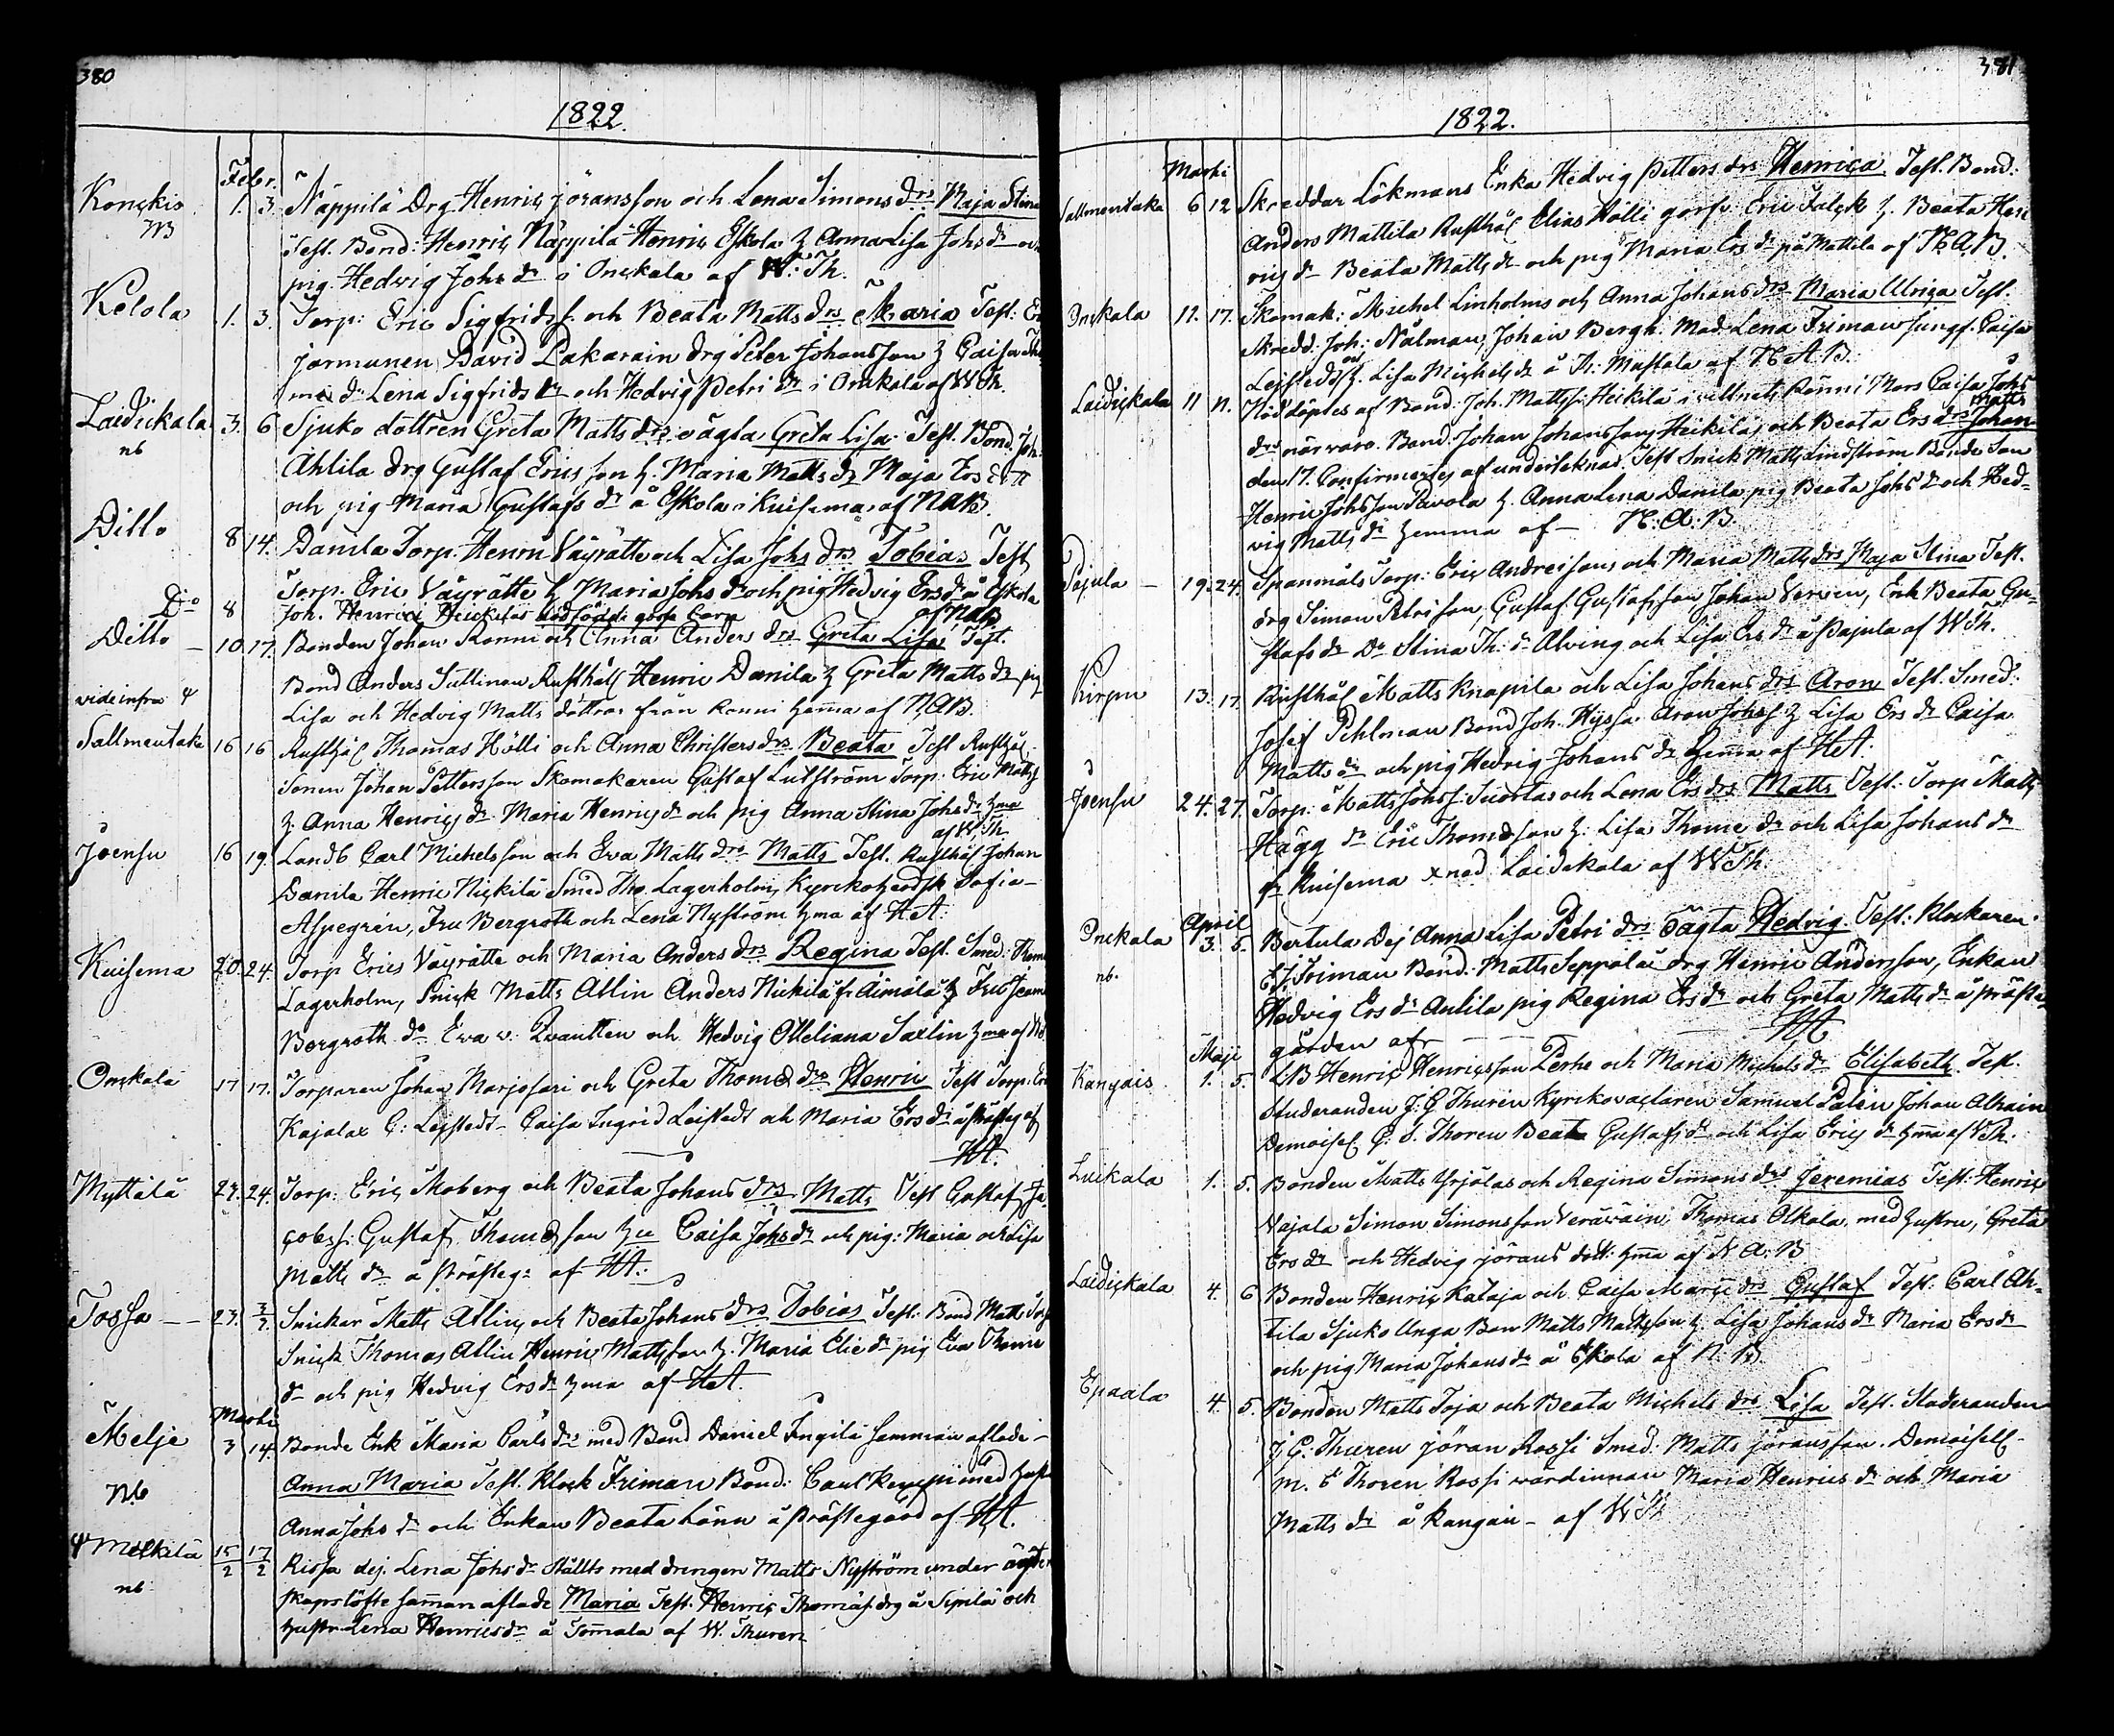 380
1822.
Febr.
Konckis 1. 3. Näppilä Drg Henric Jöransson och Lena Simons drs Maja Stina
NB Test. Bond: Henric Näppilä Henric Eskola h Anna Lisa Johs dr och
pig. Hedvig Johs dr i Onckala af W: Th.
Kelola 1. 3. Torp: Eric Sigfrids s. och Beata Matts drs Maria Test:
Jormunen David Lakarain drg Peter Johansson h Caisa
dr Lena Sigfrids dr och Hedvig Petri dr i Onckala af W Th.
Laidickala 3. 6 Sjuko dottren Greta Matts drs oägta Greta Lisa Test. Bond. Joh.
nb Ahlila drg Gustaf Ericsson h. Maria Matts dr Maja Ers dr
och pig Maria Gustafs dr å Eskola i Kuisema af NAB.
Ditto 8 14. Danila Torp. Henric Väyrätte och Lisa Johs drs Tobias Test
Torp. Eric Väyrätte h Maria Johs dr och pig Hedvig Ers dr å Eskola
af NAB
Do 8 Joh. Henrici Heickiläs dödfödde gosse barn
Ditto – 10. 17. Bonden Johan Ronni och Anna Anders drs Greta Lisa Test.
Bond Anders Suttinen Rusthåll Henric Danila h Greta Matts dr pig
vide infra Ψ Lisa och Hedvig Matts döttrar från Ronni hema af NAB.
Sallmentaka 16 16 Rusthål Thomas Hölli och Anna Christers drs Beata Test Rusthål
Sonen Johan Pettersson Skomakaren Gustaf Lutström Torp: Eric Matts s
h. Anna Henrics dr Maria Henrics dr och pig Anna Stina Johs dr hma
af W. Th
Joensu 16 19. Landb Carl Michelsson och Eva Matts drs Matts Test. Rusthål Johan
Danila Henric Nickilä Smed Tho. Lagerholm, Kyrckoherdsk Sofia
Aspegrén, Fru Bergroth och Lena Nyström hma af HA:
Kuisema 20. 24. Torp Erics Väyrätte och Maria Anders drs Regina Test. Smed.
Lagerholm, Snick Matts Allin Anders Nickilä fr Aimälä h Fru
Bergroth do Eva v. Qvantten och Hedvig Otteliana Saxlin hma af
Onckala 17 17. Torparen Johan Marjosari och Greta Thomæ drs Henric Test Torp.
Kajalax C: Leistedt – Caisa Ingrid Leistedt och Maria Ers dr å Prästeg af
HA.
Myttälä 24. 24. Torp: Eric Moberg och Beata Johans drs Matts Test Gustaf Ja-
cobs s: Gustaf Thomæ son hu Caisa Johs dr och pig: Maria och Lisa
Matts dr å Prästeg: af HA:
Tossa – – 23. 3/3 Snickar Matts Allin och Beata Johans drs Tobias Test: Bond Matts
Snick Thomas Allin Henric Mattsson h. Maria Elie dr pig Eva Thomæ
dr och pig Hedvig Ers dr hma af HA.
Martii
Melje 3 14. Bonde Enk Maria Carls drs med Bond Daniel Ingilä samman aflade –
Nb Anna Maria Test. Klock Friman Bond: Carl Keppi med hustr
Anna Johs dr och Enkan Beata Lönn å Prästegård af HA.
Ψ Mälkilä 15/2 17/2 Rissa dej. Lena Johs dr Ställts med drengen Matts Nyström under äckten
nb skapslöfte samman aflade Maria Test. Henric Thomæs. drg å Sipilä och
hustr Lena Henrics dr å Tomala af W. Thuren
381
1822.
Martii
Sallmentaka 6 12 Skreddar Lökmans Enka Hedvig Petters drs Henrica Test. Bond:
Anders Mattila Rusthål Elias Hölli gosse Eric Falck h. Beata Hen-
rics dr Beata Matts dr och pig Maria Ers dr på Mattila af N.A.B.
Onckala 11. 17. Skomak: Michel Linholms och Anna Johans drs Maria Ulrica Test.
Skredd: Joh: Nålman, Johan Bergh. Mad: Lena Friman jungf. Caisa
Leistedt och h. Lisa Michels dr å Pr: Mustala af N A.B.
Laidickala 11 17. Nöddöptes af Bond. Joh. Matts s: Heikilä i vittnets Rönni Mors Caisa Johs
drs närvaro. Bond Johan Johanssons Heikiläs och Beata Ers drs Johan Matts
den 17. Confirmerles af undertecknad. Test Snick Matts Lindström Bonde Son
Henric Johsson Pavola h. Anna Lena Danila pig Beata Johs dr och Hed-
vig Matts dr hemma af – N: A: B.
Pajula – 19. 24. Spanmåls Torp: Eric Andreisons och Maria Matts drs Maja Stina Test.
drg Simon Petrisson, Gustaf Gustafsson, Johan Verven, Enk Beata Gu-
stafs dr Do Stina Th: dr Alving och Lisa Ers dr å Pajula af W Th.
Kirpu 13. 17 Rusthål Matts Knapila och Lisa Johans drs Aron Test. Smed:
Josef Pihlman Bond Joh. Hyssa. Aron Johs s h Lisa Ers dr Caisa
Matts dr och pig Hedvig Johans dr hema af HA.
Joensu 24. 27. Torp: Matts Johs s: Suortas och Lena Ers drs Matts Test: Torp Matts
Hägg do Eric Thomæson h: Lisa Thomæ dr och Lisa Johans dr
fr Kuisema Laidikala af W Th
April
Onckala 3. 5. Bertula Dej Anna Lisa Petri drs oägta Hedvig Test: Klockaren
nb. E J: Friman Bond: Matts Seppälä drg Henric Andersson, Enkan
Hedvig Ers dr Anlila pig Regina Ers dr och Greta Matts dr å Präste-
gården af – – – HA
Maji
Kangais 1. 5. LB Henric Henricsson Perhe och Maria Michels dr Elisabeth Test.
Studeranden J: G Thuren Kyrckovactaren Samuel Palén Johan Alhain
Demoisel C. S. Thoren Beata Gustafs dr och Lisa Erics dr hma af W Th.
Luikala 1. 5. Bonden Matts Yrjölas och Regina Simons drs Jeremias Test: Henric
Najala Simon Simonsson Veräväin, Thomas Alkala med hustru, Greta
Ers dr och Hedvig Jörans dott: hma af N A: B
Laidickala 4. 6 Bonden Henric Kataja och Caisa Marci drs Gustaf Test. Carl Ah-
tila Sjuko Unga Bon Matts Mattsson h. Lisa Johans dr Maria Ers dr
och pig Maria Johans dr å Eskola af N. B.
Epaala 4. 5. Bonden Matts Toja och Beata Michels drs Lisa Test. Studeranden
J. G. Thuren Jöran Rossi Smed: Matts Jöransson. Demoisell –
M. E Thoren Rossi wärdinnan Maria Henrics dr och Maria
Matts dr å Kangais – af W Th